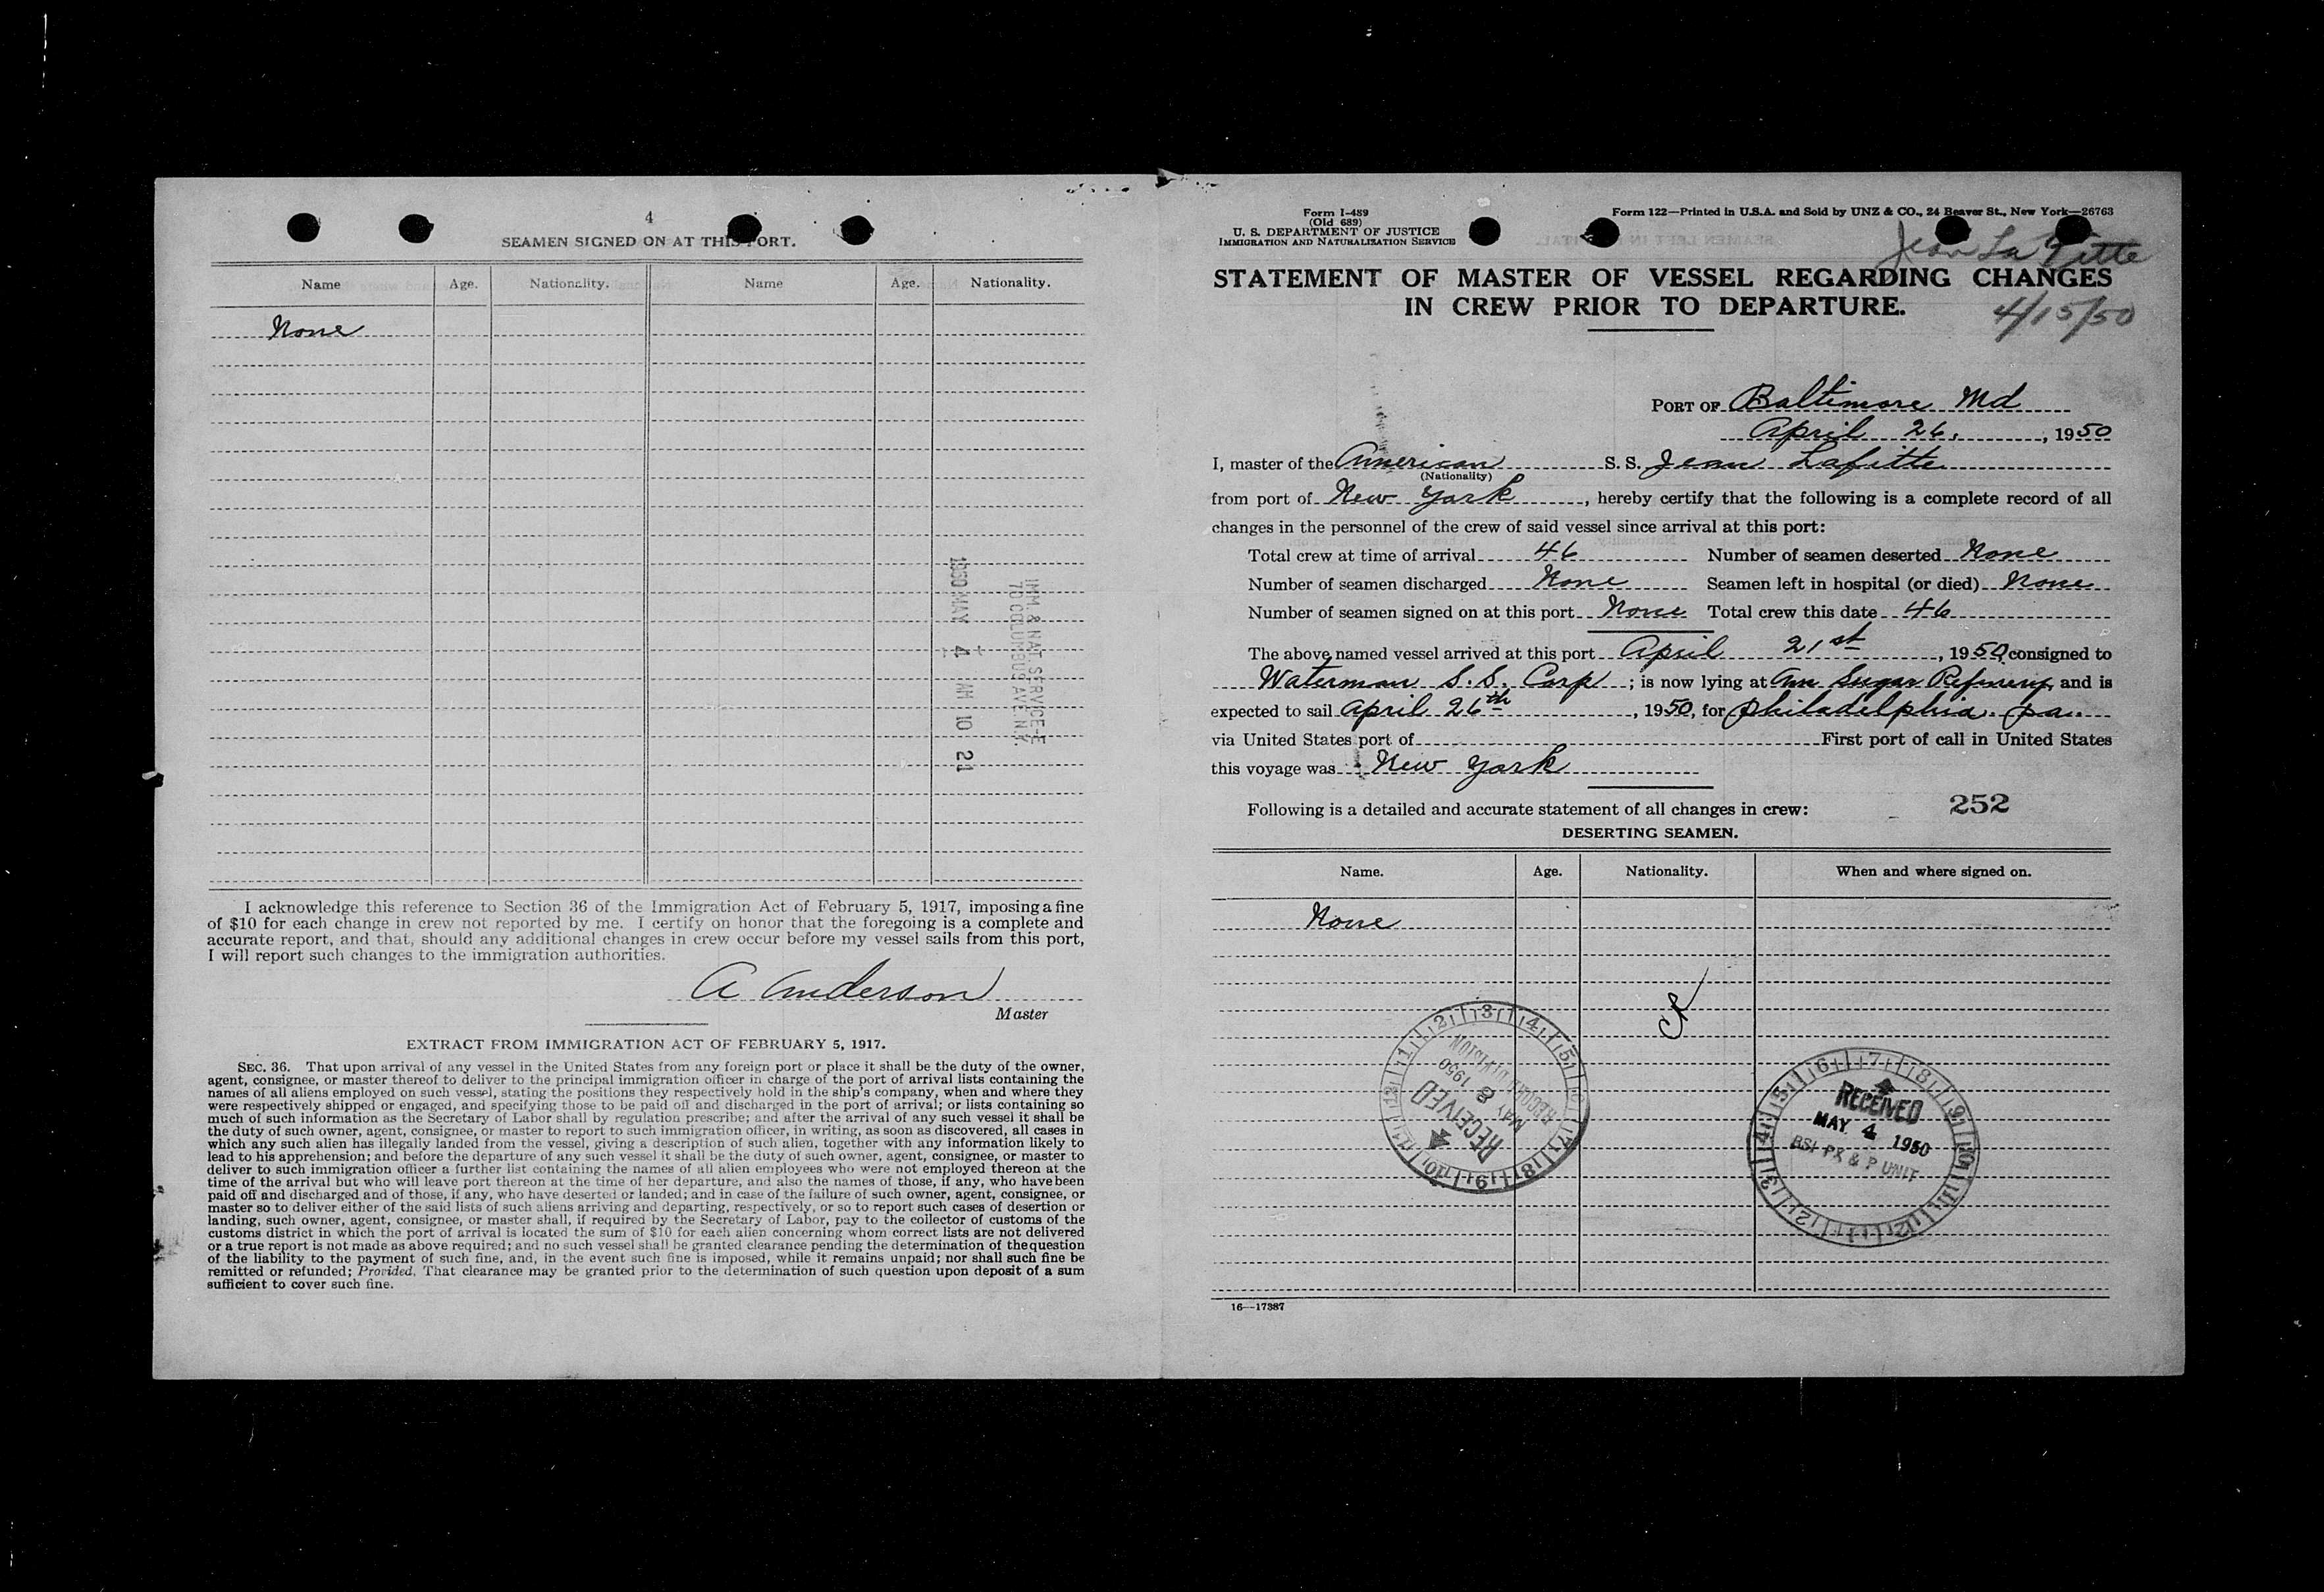 4
SEAMEN SIGNED ON AT THIS PORT.
Name Age. Nationality. Name Age. Nationality.
None
1950 MAY 4 AM 10 21
IMM. & NAT. SERVICE-E
70 COLUMBUS AVE. N.Y.
I acknowledge this reference to Section 36 of the Immigration Act of February 5, 1917, imposing a fine
of $10 for each change in crew not reported by me. I certify on honor that the foregoing is a complete and
accurate report, and that, should any additional changes in crew occur before my vessel sails from this port,
I will report such changes to the immigration authorities.
A Anderson
Master
EXTRACT FROM IMMIGRATION ACT OF FEBRUARY 5, 1917.
SEC. 36. That upon arrival of any vessel in the United States from any foreign port or place it shall be the duty of the owner,
agent, consignee, or master thereof to deliver to the principal immigration officer in charge of the port of arrival lists containing the
names of all aliens employed on such vessel, stating the positions they respectively hold in the ship's company, when and where they
were respectively shipped or engaged, and specifying those to be paid off and discharged in the port of arrival; or lists containing so
much of such information as the Secretary of Labor shall by regulation prescribe; and after the arrival of any such vessel it shall be
the duty of such owner, agent, consignee, or master to report to such immigration officer, in writing, as soon as discovered, all cases in
which any such alien has illegally landed from the vessel, giving a description of such alien, together with any information likely to
lead to his apprehension; and before the departure of any such vessel it shall be the duty of such owner, agent, consignee, or master to
deliver to such immigration officer a further list containing the names of all alien employees who were not employed thereon at the
time of the arrival but who will leave port thereon at the time of her departure, and also the names of those, if any, who have been
paid off and discharged and of those, if any, who have deserted or landed; and in case of the failure of such owner, agent, consignee, or
master so to deliver either of the said lists of such aliens arriving and departing, respectively, or so to report such cases of desertion or
landing, such owner, agent, consignee, or master shall, if required by the Secretary of Labor, pay to the collector of customs of the
customs district in which the port of arrival is located the sum of $10 for each alien concerning whom correct lists are not delivered
or a true report is not made as above required; and no such vessel shall be granted clearance pending the determination of the question
of the liability to the payment of such fine, and, in the event such fine is imposed, while it remains unpaid; nor shall such fine be
remitted or refunded; Provided, That clearance may be granted prior to the determination of such question upon deposit of a sum
sufficient to cover such fine.
Form I-489
(Old 689)
U. S. DEPARTMENT OF JUSTICE
IMMIGRATION AND NATURALIZATION SERVICE
Form 122—Printed in U.S.A. and Sold by UNZ & CO., 24 Beaver St., New York—26763
Jean La Fitte
STATEMENT OF MASTER OF VESSEL REGARDING CHANGES
IN CREW PRIOR TO DEPARTURE.
4/15/50
PORT OF Baltimore Md
April 26, , 1950
I, master of the American S. S. Jean Lafitte
(Nationality)
from port of New York , hereby certify that the following is a complete record of all
changes in the personnel of the crew of said vessel since arrival at this port:
Total crew at time of arrival 46 Number of seamen deserted None
Number of seamen discharged None Seamen left in hospital (or died) None
Number of seamen signed on at this port None Total crew this date 46
The above named vessel arrived at this port April 21st , 1950, consigned to
Waterman S.S. Corp ; is now lying at Am Sugar Refinery, and is
expected to sail April 26th , 1950, for Philadelphia. Pa.
via United States port of First port of call in United States
this voyage was New York
Following is a detailed and accurate statement of all changes in crew:
252
DESERTING SEAMEN.
Name. Age. Nationality. When and where signed on.
None
RECEIVED
MAY 8 1950
RECORD DIVISION
RECEIVED
MAY 4 1950
BSI PX & P UNIT
16—17387